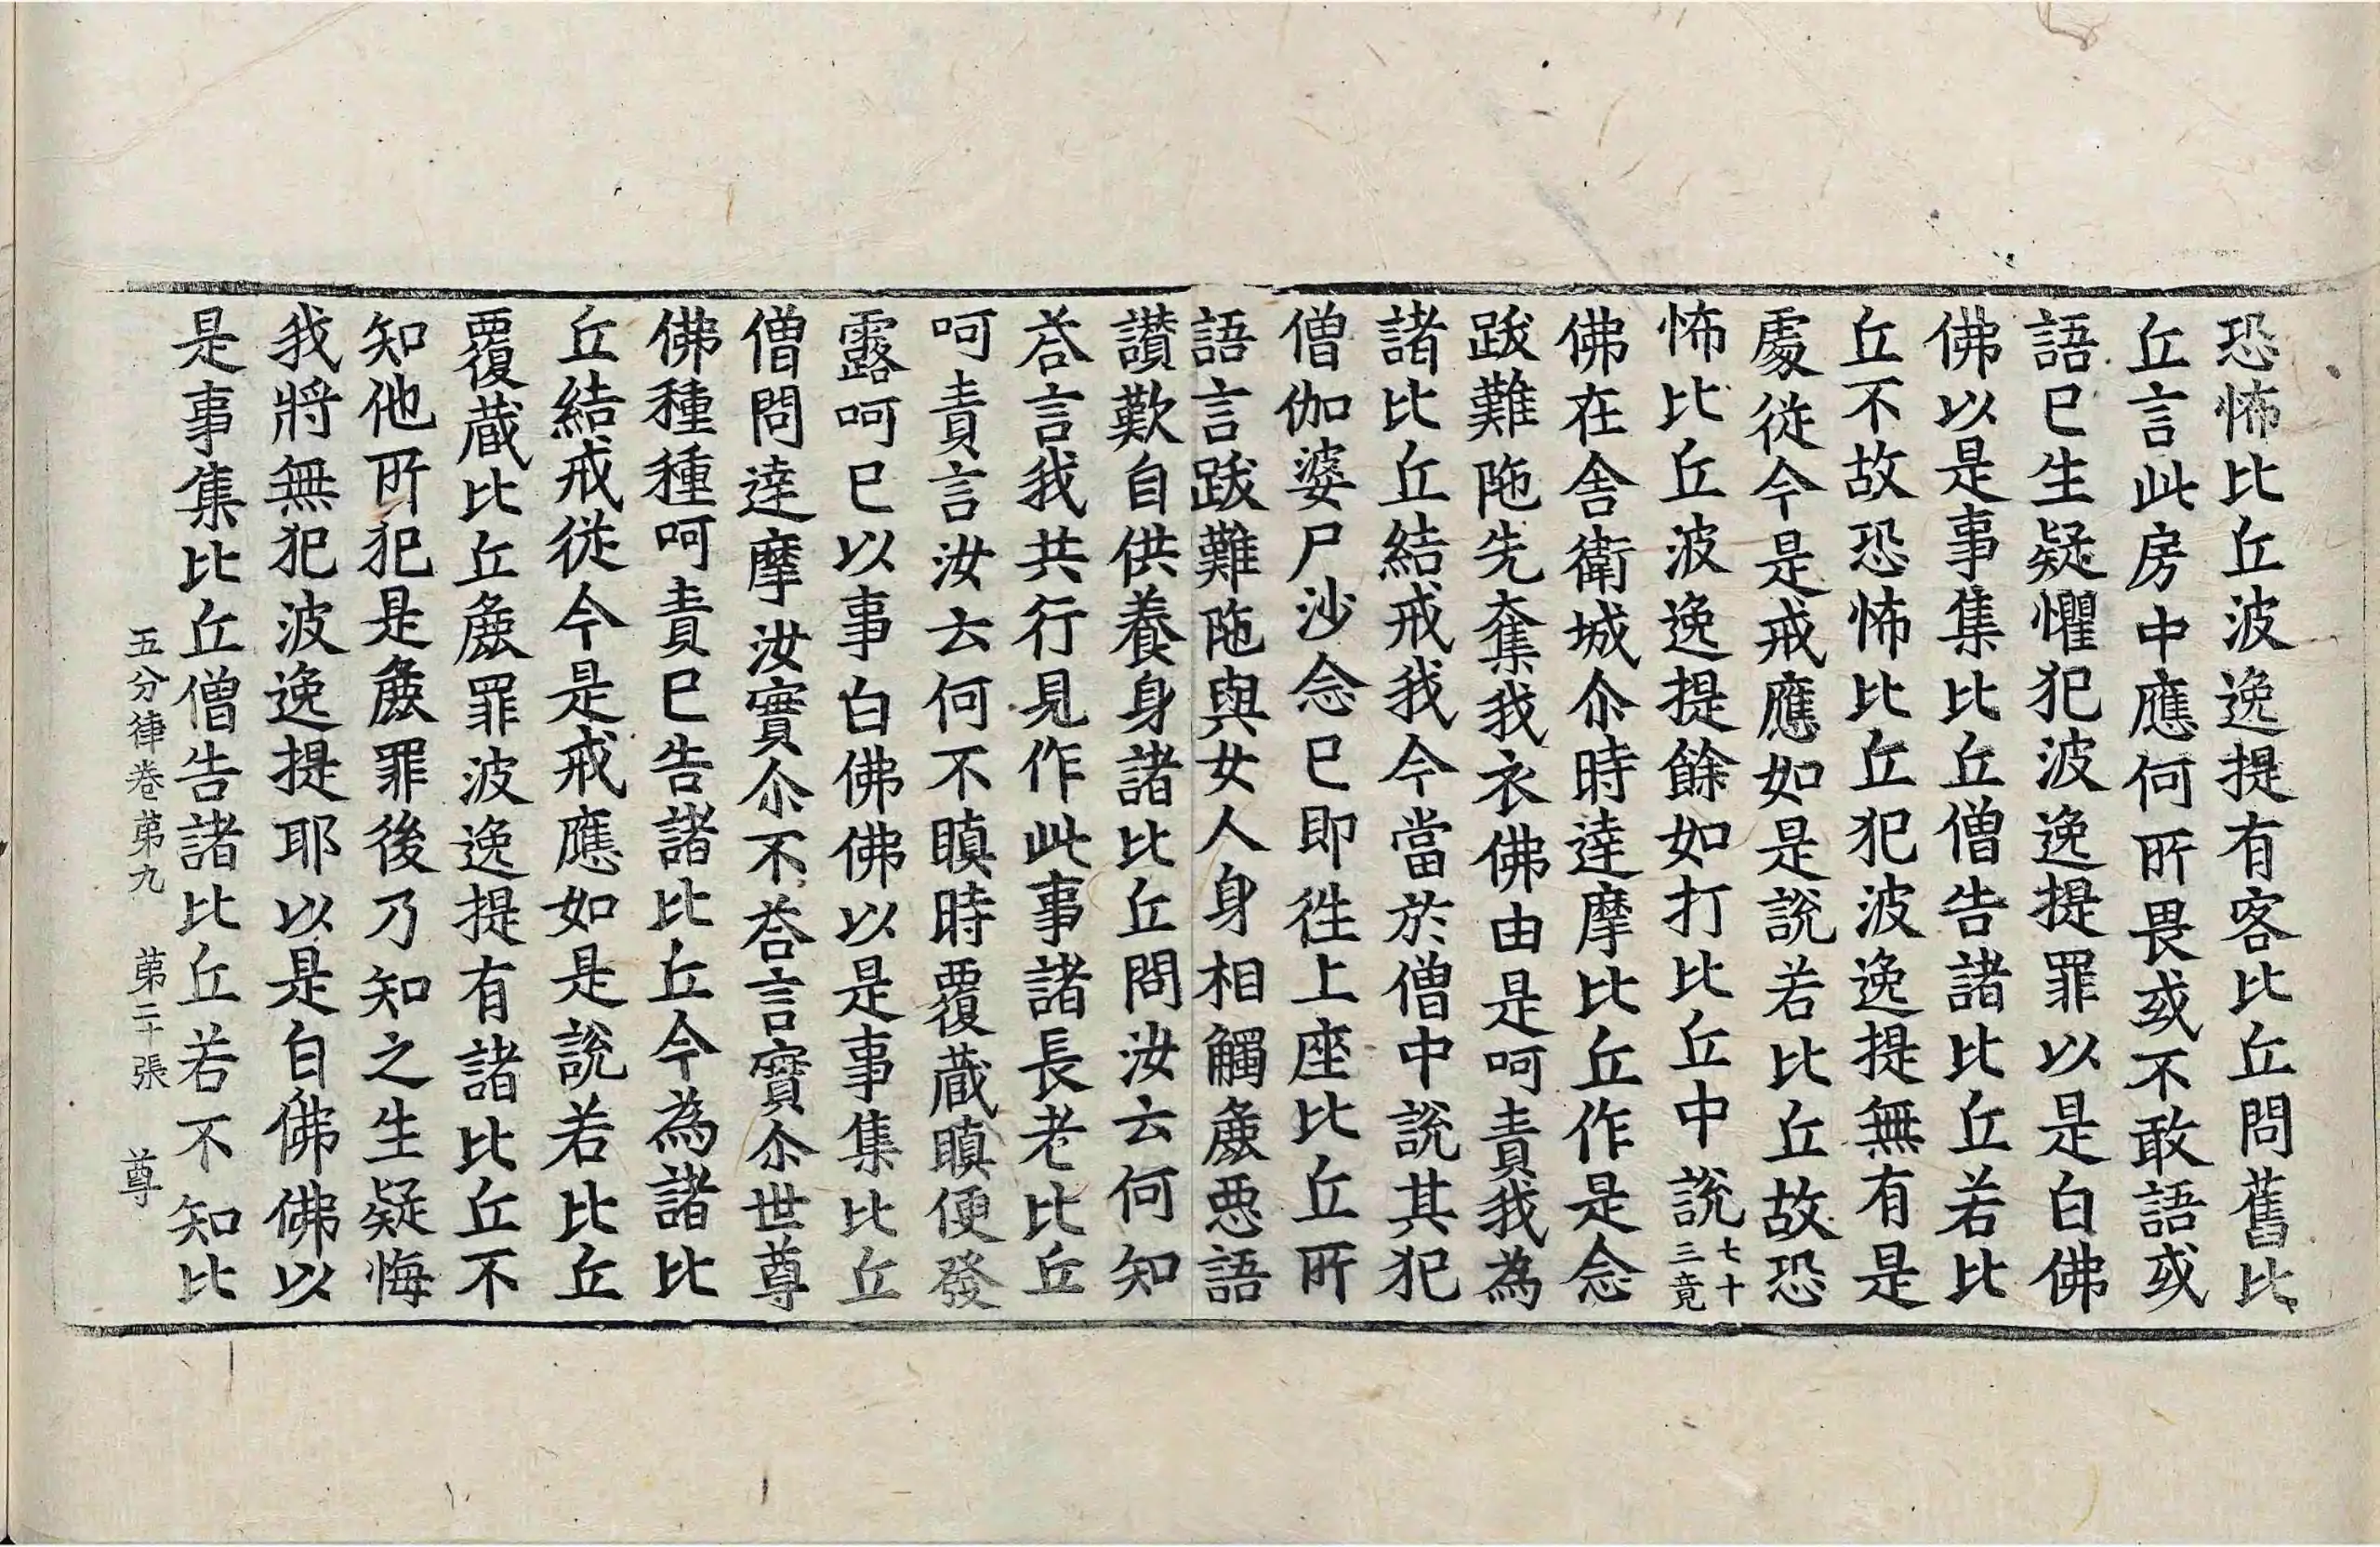 恐怖比丘波逸提有客比丘問舊比
丘言此房中應何所畏或不敢語或
語已生疑懼犯波逸提罪以是白佛
佛以是事集比丘僧告諸比丘若比
丘不故恐怖比丘犯波逸提無有是
處從今是戒應如是說若比丘故恐
怖比丘波逸提餘如打比丘中說七十三竟
佛在舍衛城尒時達摩比丘作是念
跋難陁先奪我衣佛由是呵責我為
諸比丘結戒我今當於僧中說其犯
僧伽婆尸沙念已即徃上座比丘所
語言跋難陁與女人身相觸麁惡語
讃歎自供養身諸比丘問汝云何知
荅言我共行見作此事諸長老比丘
呵責言汝云何不瞋時覆蔵瞋便發
露呵已以事白佛佛以是事集比丘
僧問達摩汝實尒不荅言實尒世尊
佛種種呵責已告諸比丘今為諸比
丘結戒從今是戒應如是說若比丘
覆蔵比丘麁罪波逸提有諸比丘不
知他所犯是麁罪後乃知之生疑悔
我將無犯波逸提耶以是白佛佛以
是事集比丘僧告諸比丘若不知比
五分律卷第九　第二十張　尊